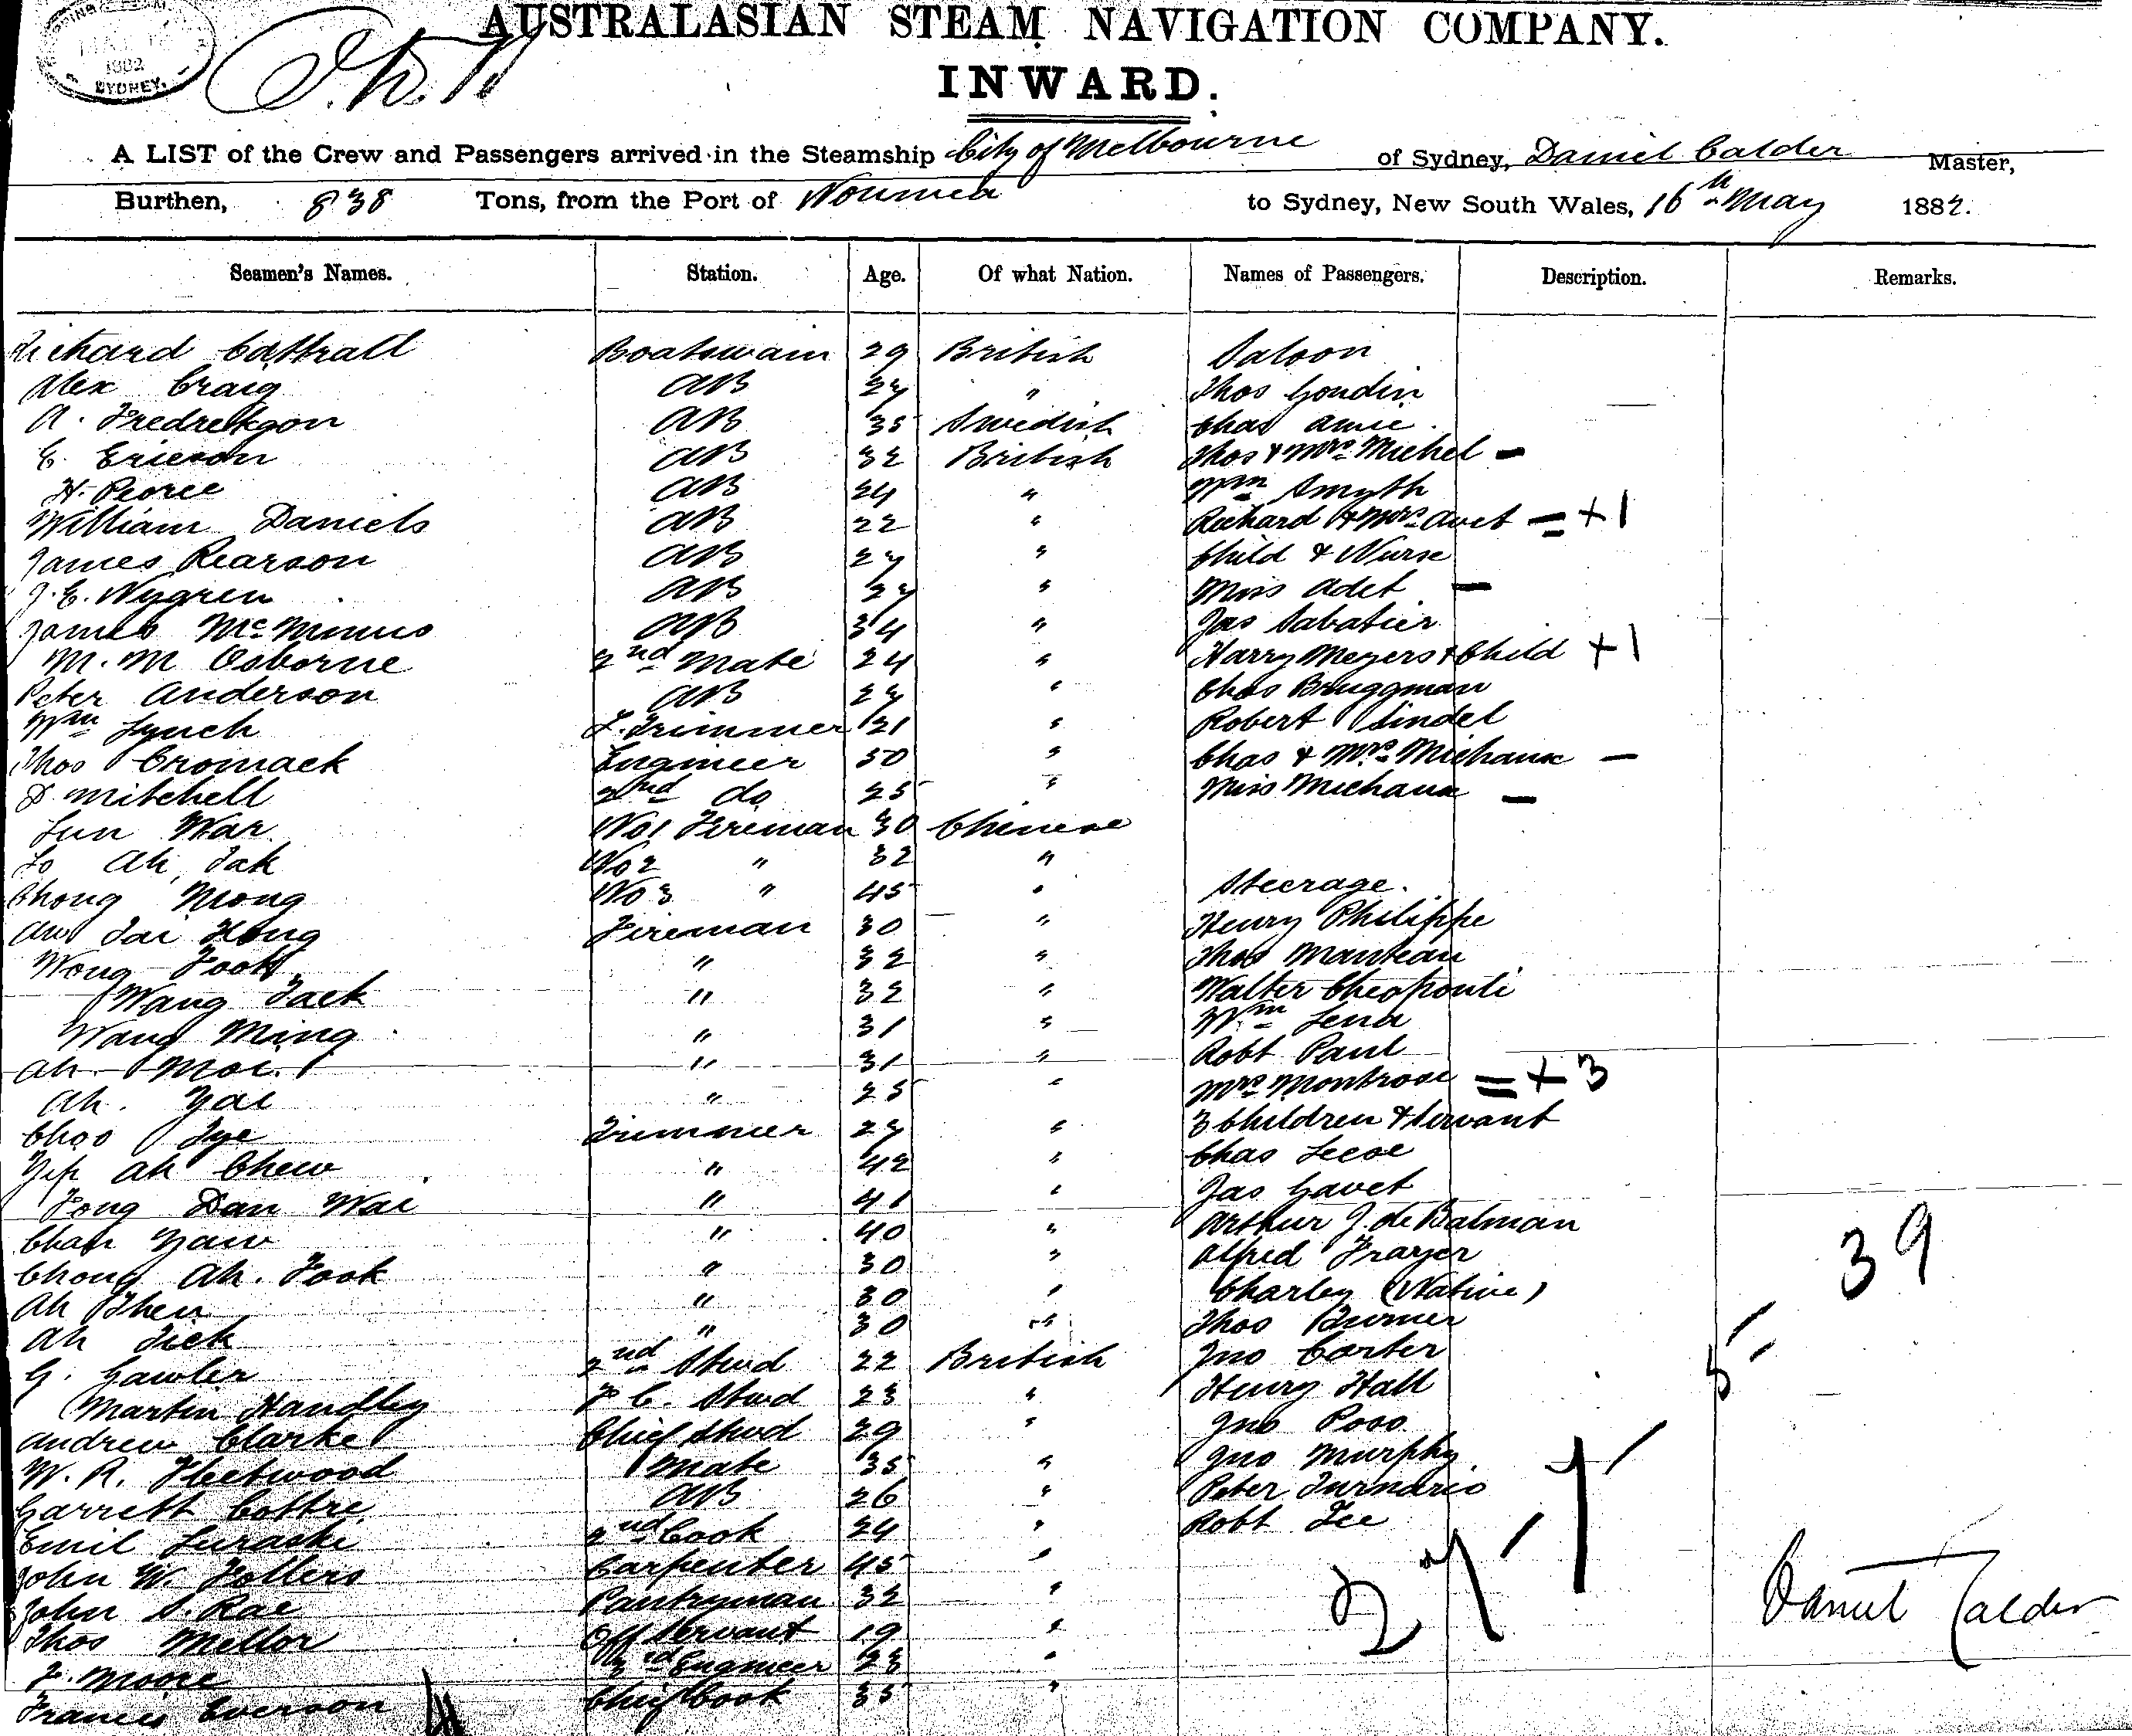 1882
SYDNEY.
AUSTRALASIAN STEAM NAVIGATION COMPANY.
INWARD.
A LIST of the Crew and Passengers arrived in the Steamship City of Melbourne of Sydney, Daniel Calder Master,
Burthen, 838 Tons, from the Port of Noumea to Sydney, New South Wales, 16th May 1882.
Seamen's Names. Station. Age. Of what Nation. Names of Passengers. Description. Remarks.
Richard Cattrall Boatswain 29 British Saloon
Alex Craig AB 27 " Thos Goudin
A. Fredrekson AB 35 Swedish Chas Amie
E. Ericson AB 32 British Thos & Mrs Michel -
H. Peorce AB 24 " Wm Smyth
William Daniels AB 22 " Richard & Mrs Avet = +1
James Pearson AB 27 " Child & Nurse
J. E. Nygren AB 27 " Miss Adet -
James McMinnis AB 34 " Jas Sabatier
M. M Osborne 2nd Mate 24 " Harry Meyers & Child +1
Peter Anderson AB 27 " Chas Bruggman
Wm Lynch L. Trimmer 21 " Robert Sindel
Thos Cromack Engineer 50 " Chas & Mrs Michaux -
D. Mitchell 2nd do 25 " Miss Michaux -
Sun War No 1 Fireman 30 Chinese
Lo Ah Tak No 2 " 32 "
Chong Mong No 3 " 45 " Steerage.
Aw Tai Hong Fireman 30 " Henry Philippe
Wong Fook " 32 " Thos Manteau
Wang Jack " 32 " Walter Cheoponti
Wang Ming " 31 " Wm Lena
Ah Moi " 31 " Robt Paul
Ah. Yai " 25 " Mrs Montrose = +3
Choo Jye Trimmer 27 " 3 Children & Servant
Yip Ah Chew " 42 " Chas Leese
Fong Dan Wai " 41 " Jas Gavet
Chan Yaw " 40 " Arthur J. de Balman
Chong Ah. Fook " 30 " Alfred Frayer
Ah " 30 " Charley (Native)
Ah Tick " 30 " Thos
G. Gawler 2nd Stwd 22 British Jno Carter
Martin Handley F C. Stwd 23 " Henry Hall
Andrew Clarke Chief Stwd 29 " Jno Poso
W. R. Fleetwood Mate 35 " Jno Murphy
Garrett Cottre AB 26 " Peter
Emil Luraski 2nd Cook 24 " Robt Lee
John W. Follers Carpenter 45 "
John S. Rae Pantryman 32 "
Thos Mellor Off Servant 19 "
F. Moore 3rd Engineer 23 "
Francis Everson Chief Cook 35 "
39
27
Daniel Calder